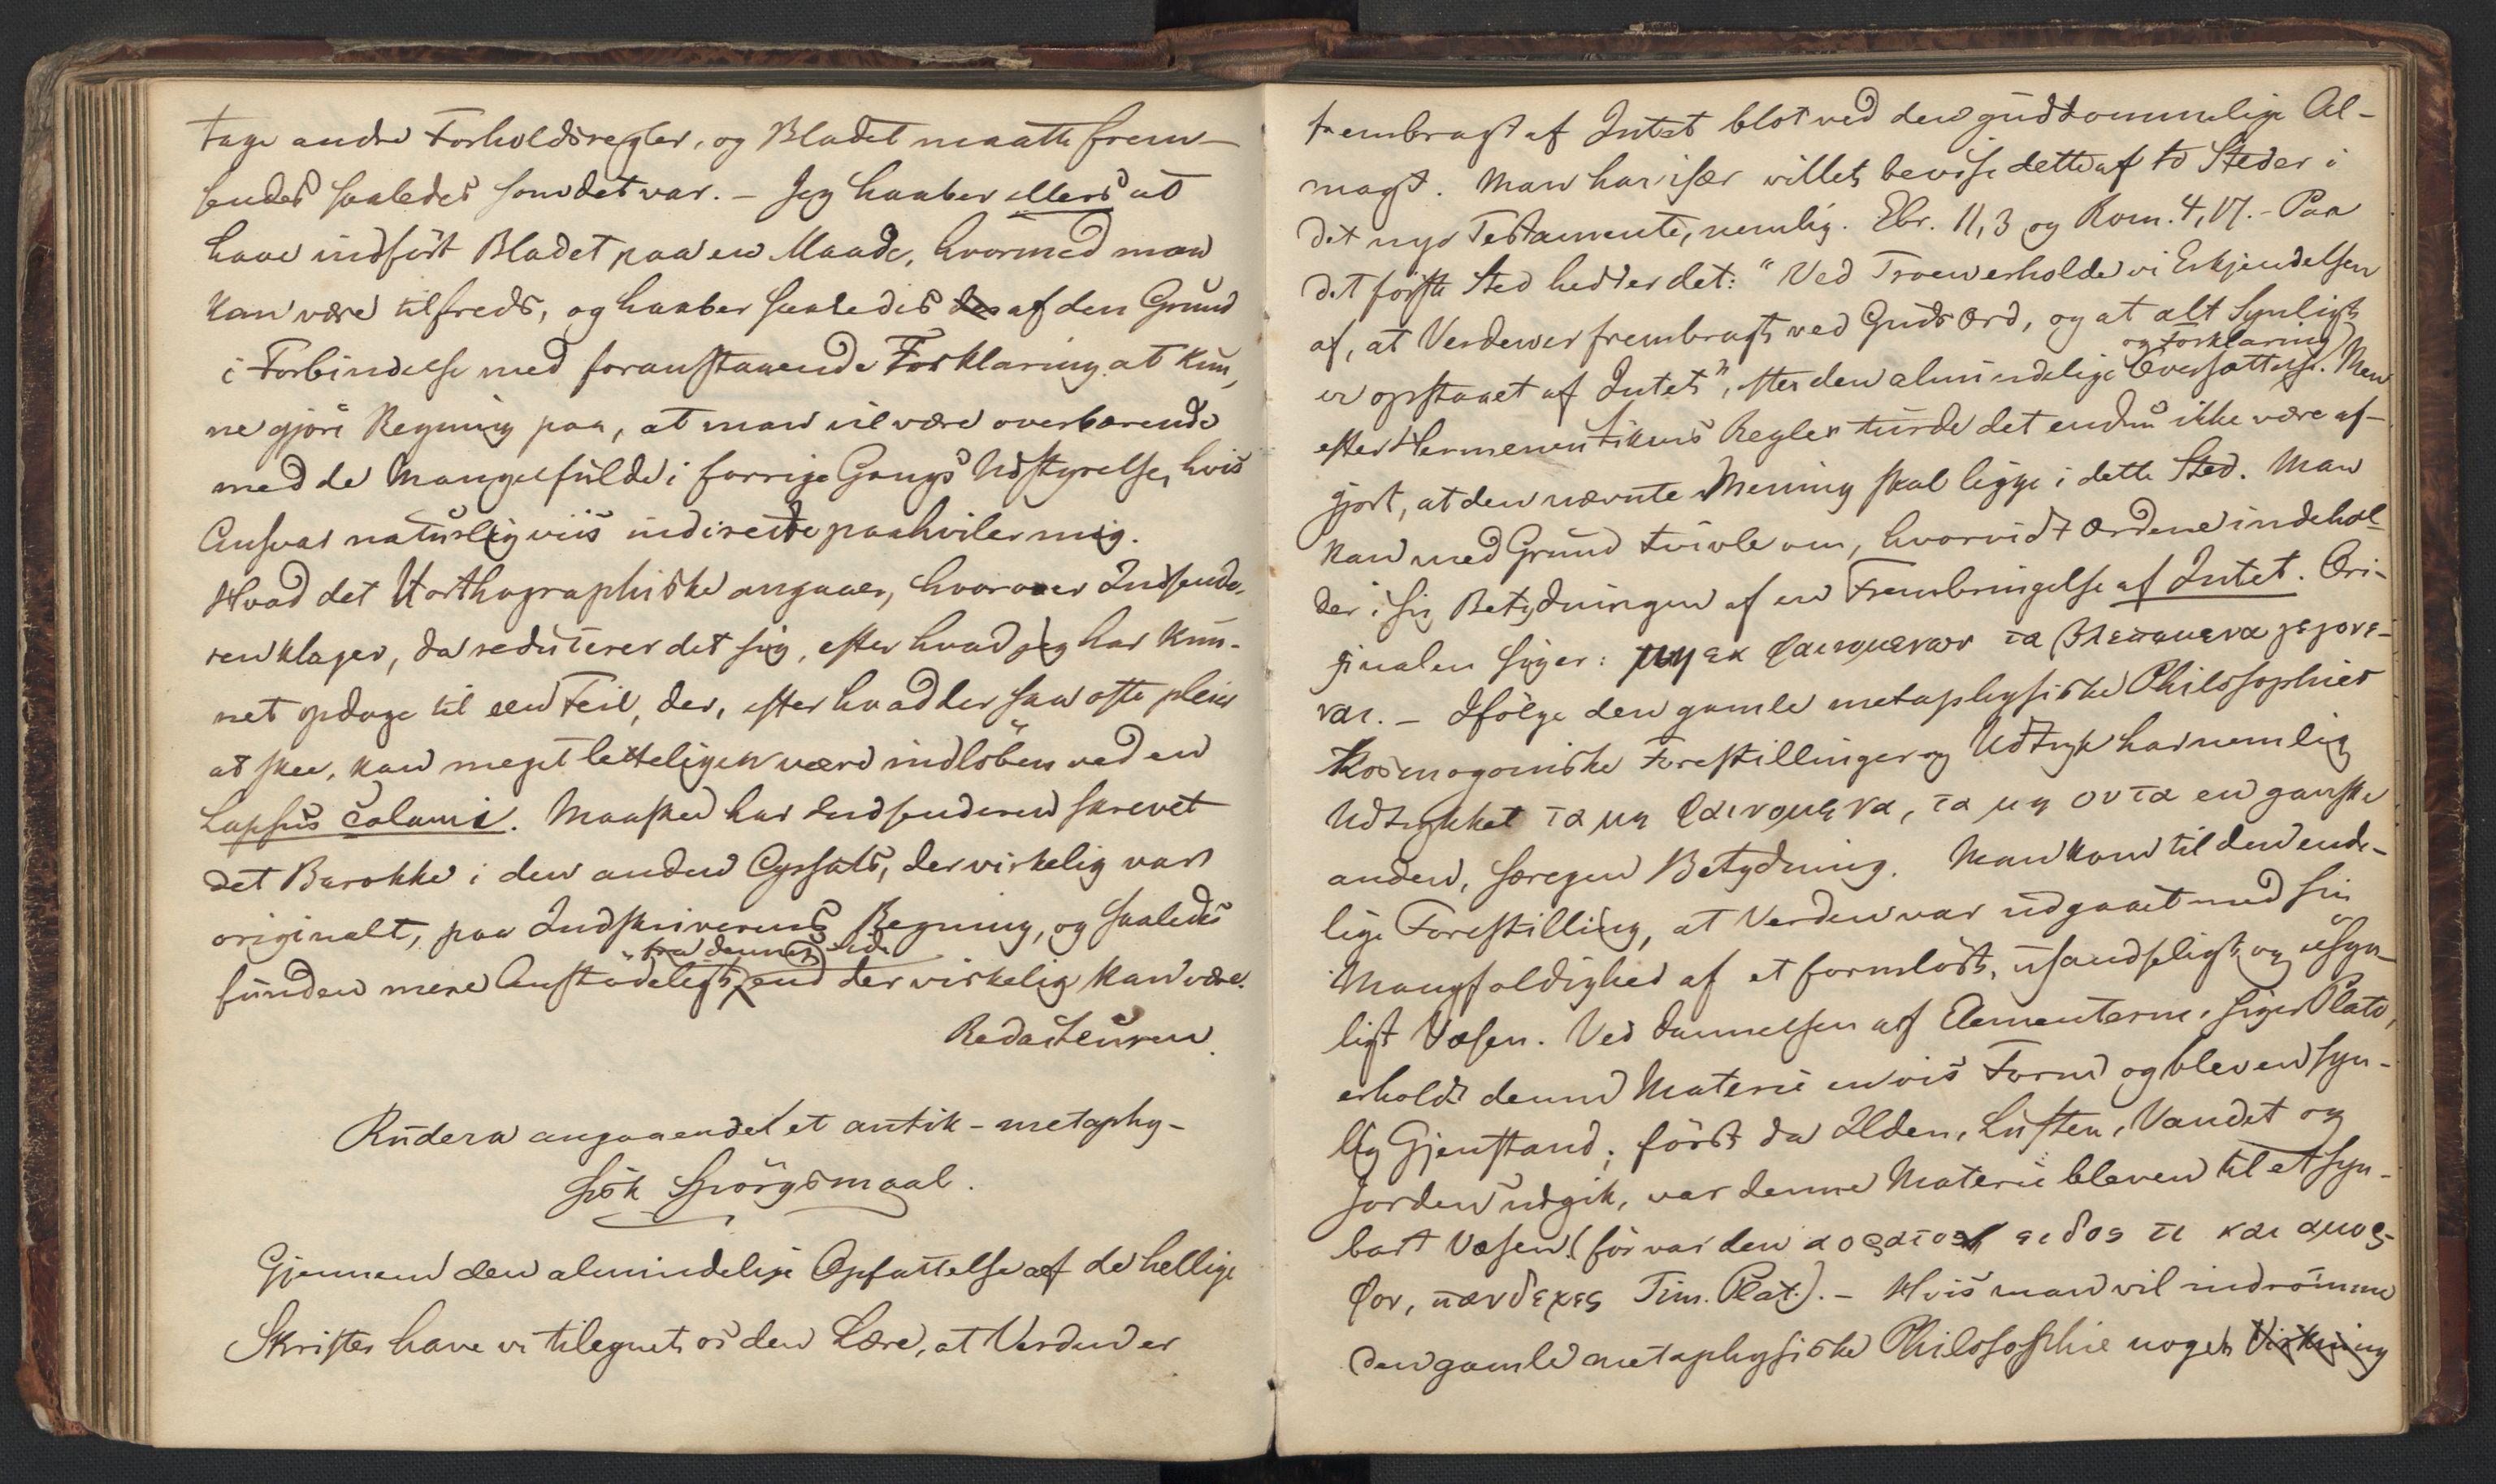 tage andre Forholdsregler, og Bladet maatte frem-
sendes saaledes som det var. - Jeg haaber ellers at
have indført Bladet paa en Maade, hvormed man
kan være tilfreds, og haaber saaledes des af den Grund
i Forbindelse med foranstaaende Forklaring at kun,
ne gjøre Regning paa, at man vil være overbærende
med de Mangelfulde i forrige Gangs Udstyrelse, hvis
Ansvar naturligviis indirecte paahviler mig.
Hvad det Uorthographiske angaaer, hvorover Indsende,
ren klager, da reducerer det sig, efter hvad jeg har kun-
net opdage til een Feil, der, efter hvad der saa ofte pleier
at skee, kan meget letteligen være indløben ved en
Lapsus calami. Maaskee har Indsenderen skrevet
det Barokke i den anden Opsats, der virkelig var
originalt, paa Indskriverens Regning, og saaledes
fra dennes Side
funden mere Anstødeligt, end der virkelig kan være.
Redacteuren.
Rudera angaaende et antik-metaphy-
sisk Spörgsmaal.
Gjennem den almindelige Opfattelse af de hellige
Skrifter have vi tilegnet os den Lære, at Verden er
frembragt af Intet blot ved den guddommelige Al-
magt. Man har især villet bevise dette af to Steder i
det nye Testamente, nemlig. Ebr. 11,3 og Rom. 4,17. - Paa
det første Sted hedder det: "Ved Troen erholde vi Erkjendelsen
af, at Verden er frembragt ved Guds Ord, og at alt Synligt
og Forklaring
er opstaaet af Intet", efter den almindelige Oversættelse. Men
efter Hermeneutikens Regler turde det endnu ikke være af-
gjort, at den nævnte Mening skal ligge i dette Sted. Man
kan med Grund tvivle om, hvorvidt Ordene indehol-
der i sig Betydningen af en Frembringelse af Intet. Ori-
ginalen siger: μη εκ φαινομενων τα βλεπομενα γεγονε-
ναι. - Ifølge den gamle metaphysiske Philosophies
kosmogoniske Forestillinger og Udtryk har nemlig
Udtrykket τα μη φαινομενα, τα μη οντα en ganske
anden, særegen Betydning. Man kom til den ende-
lige Forestilling, at Verden var udgaaet med sin
Mangfoldighed af et formløst, usandseligt og usyn-
ligt Væsen. Ved Dannelsen af Elementerne, siger Plato,
erholdt denne Materie en vis Form og blev en syn-
lig Gjenstand; først da Ilden, Luften, Vandet og
Jorden udgik, var denne Materie bleven til et syn-
bart Væsen (før var den αορατον ειδος τι και αμορ-
φον, πανδεχες Tim. Plat.). - Hvis man vil indrømme
den gamle metaphysiske Philosophie noget Virkning